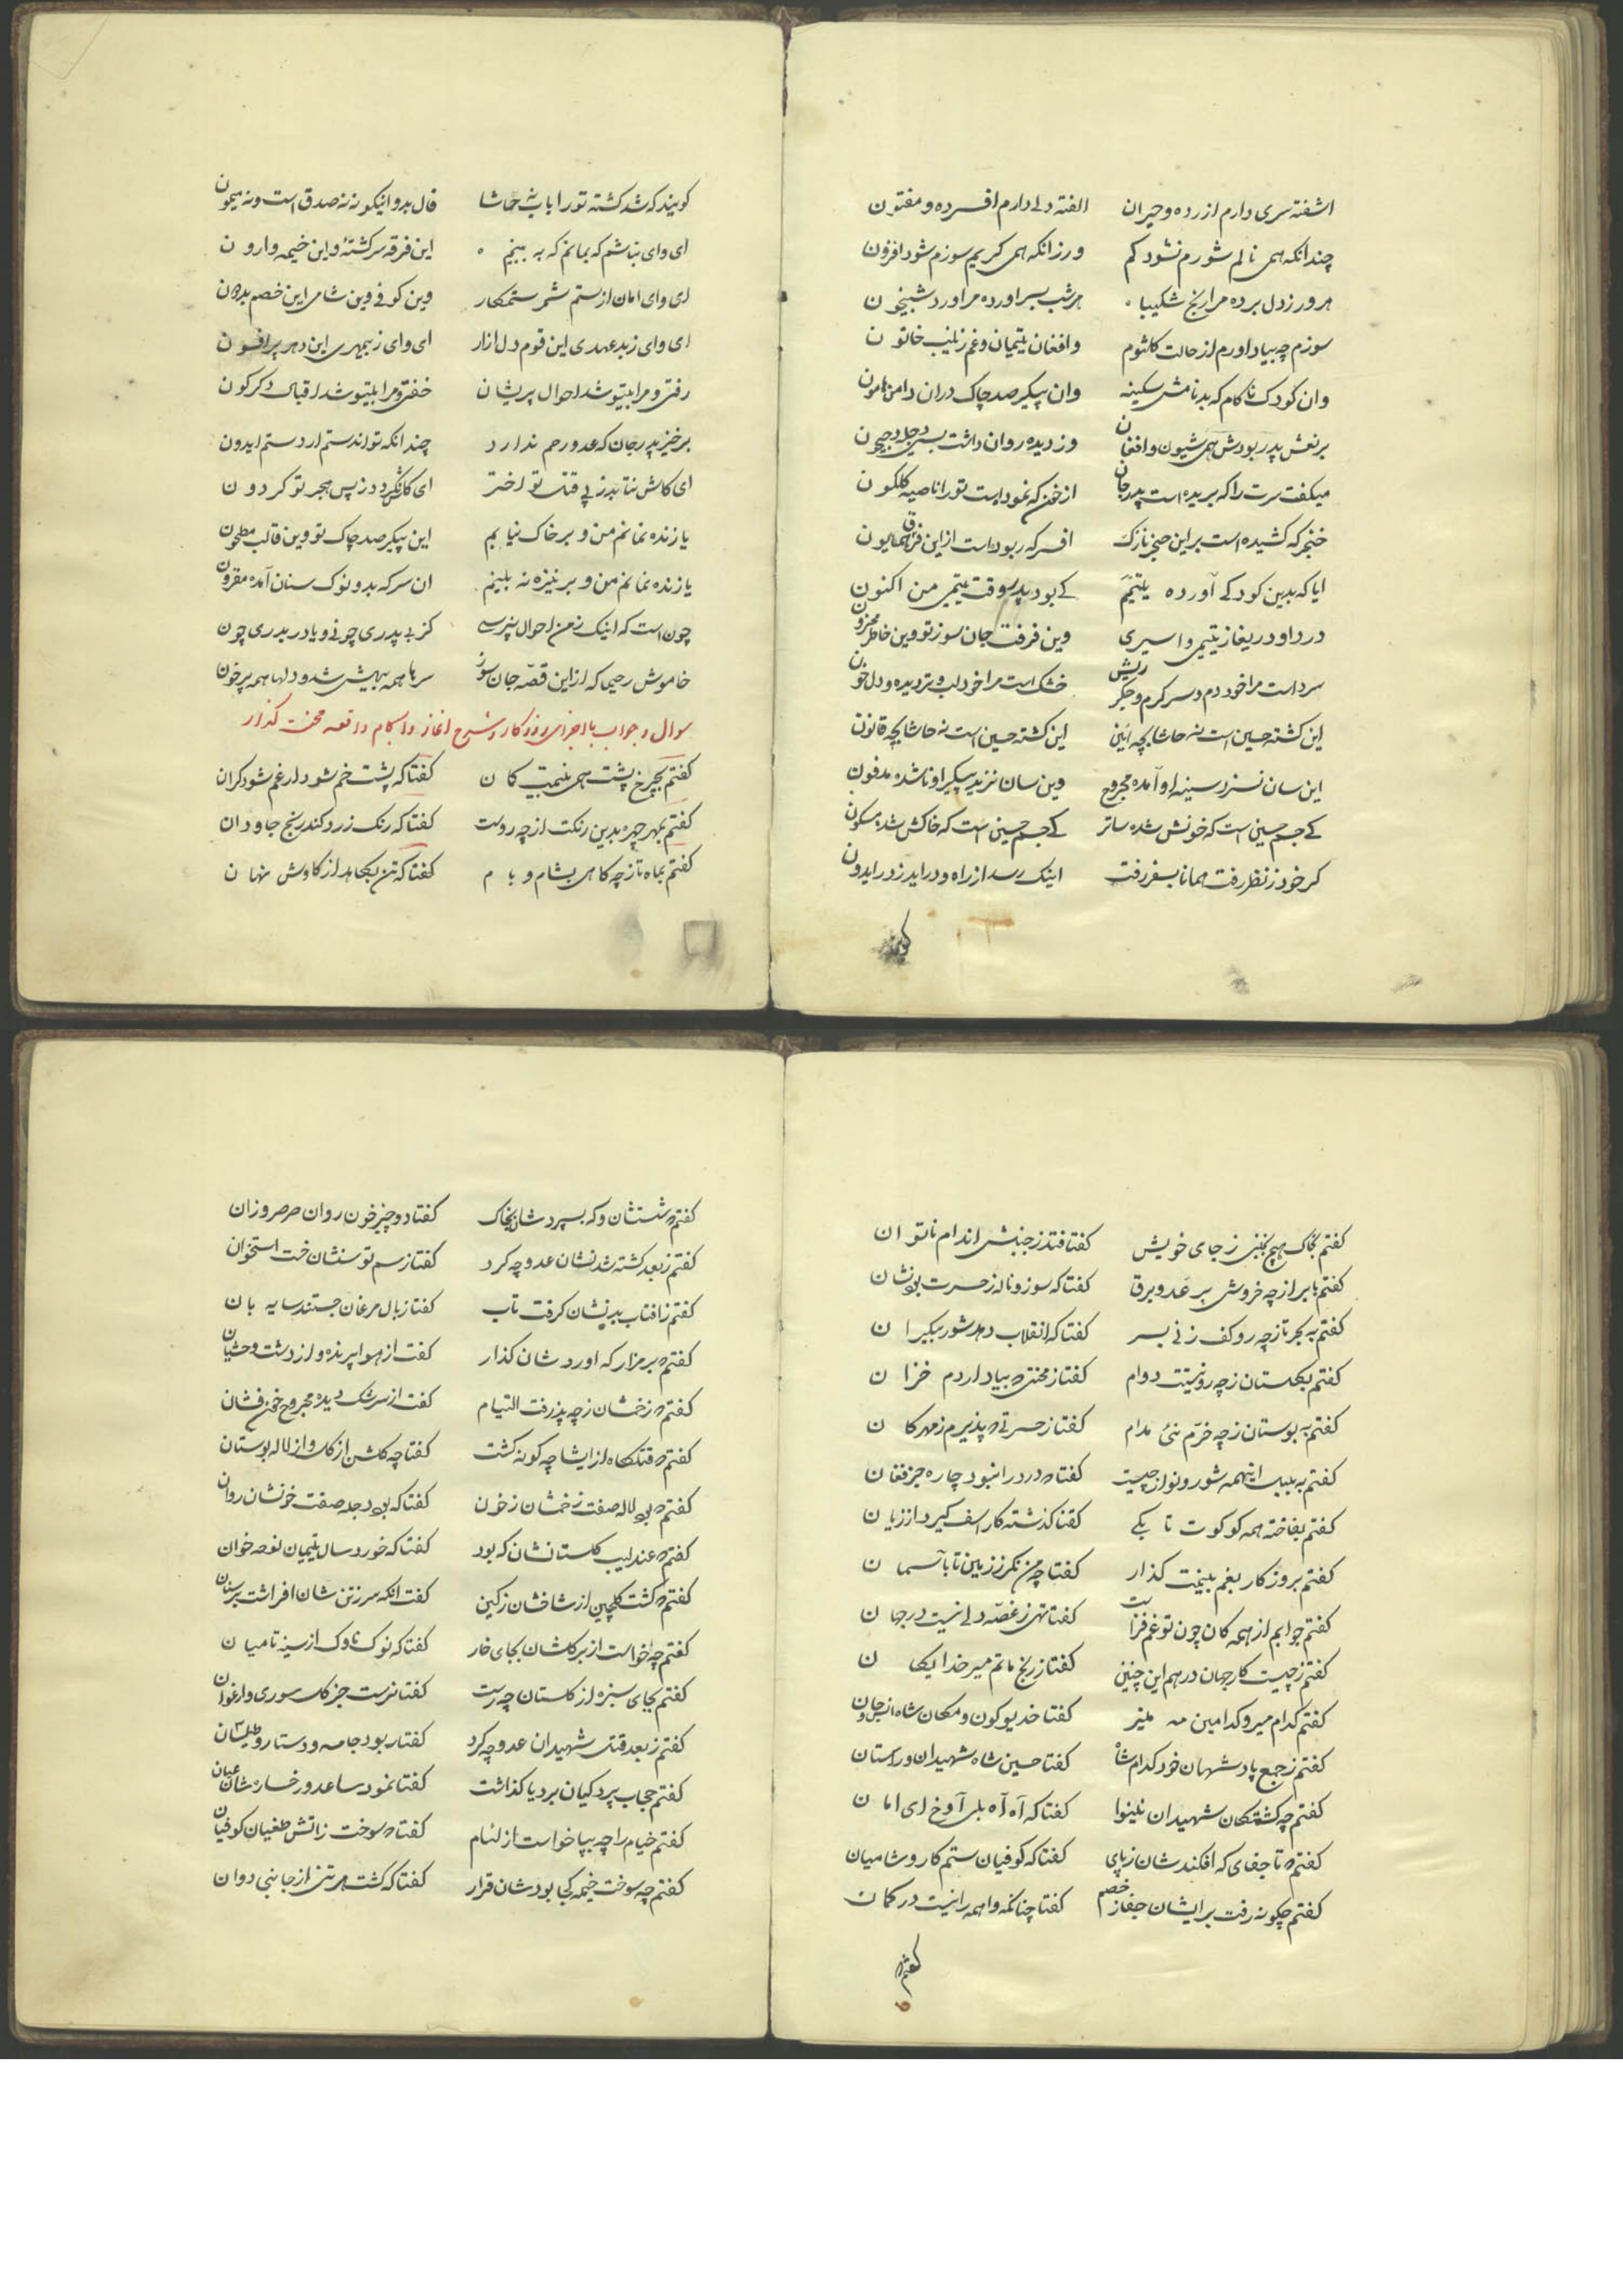 اشفته سری دارم ازرده و حیران الفته دلی دارم افسرده و مفتون
چندانکه همی نالم شورم نشود کم ورزانکه همی کریم سوزم شود افزون
هر روز ز دل برده مرا رنج شکیبا هر شب بسر اورده مرا ورد شبیخون
سوزم چو بیاد اورم از حالت کلثوم وافغان یتیمان و غم زینب خاتون
وان کودک ناکام که بد نامش سکینه وان پیکر صد چاک دران دامن هامون
بر نعش پدر بودش همی شیون و افغان وز دیده روان داشت بسی دجله و جیحون
میکفت سرت را که بریده است پدرجان از خون که نموداست تو را ناصیه کلکون
خنجر که کشیده است بر این حنجر نازک افسر که ربوداست از این فرق همایون
ایا که بدین کودکی آورده یتیمم کی بود پدر وقت یتیمی من اکنون
دردا و دریغا ز یتیمی و اسیری وین فرقت جان سوز تو وین خاطر محزون
سرداست مرا خود دم و سر کرم و جکر ریش خشک است مرا خود لب و تر دیده و دل خون
این کشته حسین است نه حاشا بچه ائین این کشته حسین است نه حاشا بچه قانون
این سان نسزد سینه او آمده مجروح وین سان نزید پیکر او ناشده مدفون
کی جسم حسین است که خونش شده ساتر کی جسم حسین است که خاکش شده مسکون
کر خود ز نظر رفت همانا بسفر رفت اینک رسد از راه و دراید ز در ایدون
کویند که شد کشته تو را باب نه حاشا فال بد و اینکونه نه صدق است و نه میمون
ای وای نباشم که بمانم که به بینم این فرقه سرکشته و این خیمه وارون
ای وای امان از ستم شمر ستمکار وین کوفی وین شامی این خصم بد دون
ای وای ز بد عهدی این قوم دل ازار ای وای ز بیمهری این دهر پر افسون
رفتی و مرا بیتو شد احوال پریشان خفتی و مرا بیتو شد اقبال دکرکون
برخیز پدرجان که عدو رحم ندارد چندانکه تواند ستم ارد ستم ایدون
ای کاش نتابد ز پی قتل تو اختر ای کاش نکردد ز پس هجر تو کردون
یا زنده نمانم من و بر خاک نیابم این پیکر صد چاک تو وین قالب مطحون
یا زنده نمانم من و بر نیزه نه بینم ان سر که بدو نوک سنان آمده مقرون
چون است که اینک ز من احوال نپرسی کز بی پدری چونی و یا در بدری چون
خاموش رحیما که از این قصّه جان سوز سرها همه بیهش شد و دلها همه پر خون
سوال و جواب با اجزای روزکار و شرح اغاز و انجام واقعه محنت کذار
کفتم بچرخ پشت همی بینمت کمان کفتا که پشت خم شود ار غم شود کران
کفتم بمهر چهره بدین رنکت از چه روست کفتا که رنک زرد کند رنج جاودان
کفتم بماه تا ز چه کاهی بشام و بام کفتا که تن بکاهد از کاوش نهان
کفتم بخاک هیچ نجنبی ز جای خویش کفتا فتد ز جنبش اندام ناتوان
کفتم بابر از چه خروشی برعد و برق کفتا که سوز و ناله ز حسرت بود نشان
کفتم به بحر تا ز چه رو کف زنی بسر کفتا که انقلاب دهد شور بیکران
کفتم بکلستان ز چه رو نیستت دوام کفتا ز محنتی که بیاد اردم خزان
کفتم به بوستان ز چه خرّم نئی مدام کفتا ز حسرتی که پذیرم ز مهرکان
کفتم به بلبل اینهمه شور و نوا ز چیست کفتا که درد را نبود چاره جز فغان
کفتم بفاخته همه کوکوت تا بکی کفتا کذشته کار اسف کیرد از زیان
کفتم بروزکار بغم بینمت کذار کفتا چه من نکر ز زمین تا بآسمان
کفتم جوابم از همه کان چون تو غم فزاست کفتا تهی ز غصّه دلی نیست در جهان
کفتم ز چیست کار جهان درهم این چنین کفتا ز رنج ماتم میر خدایکان
کفتم کدام میر و کدامین مه منیر کفتا خدیو کون و مکان شاه انس و جان
کفتم ز جمع پادشهان خود کدام شاه کفتا حسین شاه شهیدان و راستان
کفتم چه کشتکان شهیدان نینوا کفتا که آه آه بلی آوخ ای امان
کفتم که تا جفای که افکندشان ز پای کفتا که کوفیان ستم کار و شامیان
کفتم چکونه رفت بر ایشان جفا ز خصم کفتا چنانکه واهمه را نیست در کمان
کفتم که
کفتم که شستشان و که بسپردشان بخاک کفتا دو چیز خون روان صرصر وزان
کفتم ز بعد کشته شدنشان عدو چه کرد کفتا ز سم توسنشان خست استخوان
کفتم ز افتاب بدنشان کرفت تاب کفتا ز بال مرغان جستند سایه بان
کفتم که بر مزار که اوردشان کذار کفت از هوا پرنده و از دشت وحشیان
کفتم که زخمشان ز چه پذرفت التیام کفت از سرشک دیده مجروح خون فشان
کفتم که قتلکاه از ایشان چه کونه کشت کفتا چه کلشن از کل و از لاله بوستان
کفتم که بد لاله صفت زخمشان ز خون کفتا که بد دجله صفت خونشان روان
کفتم که عندلیب کلستانشان که بود کفتا که خورد سال یتیمان نوحه خوان
کفتم که کشت کلچین از شاخشان ز کین کفت انکه سر ز تن شان افراشت بر سنان
کفتم چه خواست از بر کلشان بجای خار کفتا که نوک ناوک از سینه تا میان
کفتم بجای سبزه از کلستان چه رست کفتا نرست جز کل سوری و ارغوان
کفتم ز بعد قتل شهیدان عدو چه کرد کفتا ربود جامه و دستار و طیلسان
کفتم حجاب پردکیان برد یا کذاشت کفتا نمود ساعد و رخسارشان عیان
کفتم خیام را چه بپا خواست از لئام کفتا که سوخت ز اتش طغیان کوفیان
کفتم چه سوخت خیمه کجا بودشان قرار کفتا که کشت هر تنی از جانبی دوان